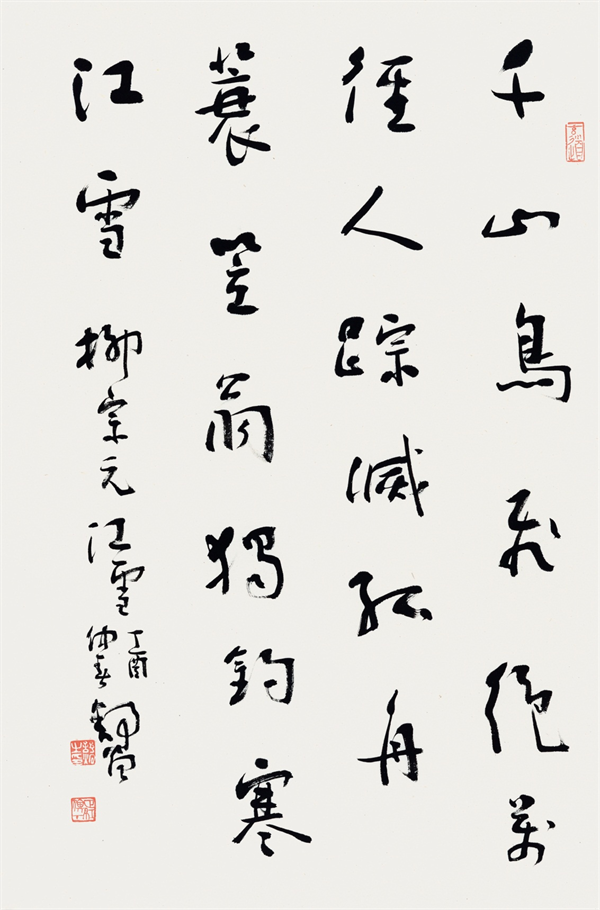 千山鳥飛絕萬
徑人踪滅孤舟
蓑笠翁獨釣寒
江雪
柳宗元江雪
丁酉
仲春